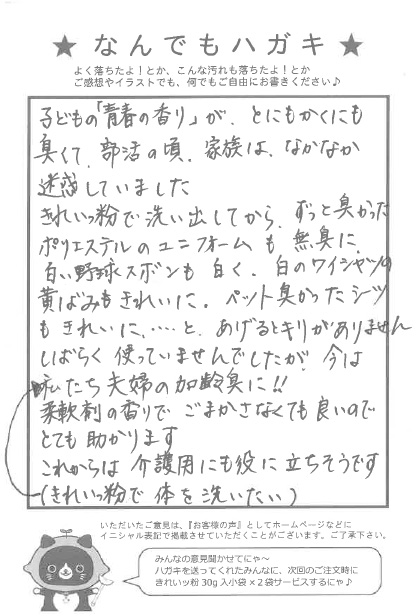 ★ なんでもハガキ ★
よく落ちたよ！とか、こんな汚れも落ちたよ！とか
ご感想やイラストでも、何でもご自由にお書きください♪
子どもの「青春の香り」が、とにもかくにも
臭くて、部活の頃、家族は、なかなか
迷惑していました
きれいッ粉で洗い出してから、ずっと臭かった
ポリエステルのユニフォームも無臭に、
白い野球ズボンも白く、白のワイシャツの
黄ばみもきれいに。ペット臭かったシーツ
もきれいに、……と、あげるとキリがありません
しばらく使っていませんでしたが、今は
私たち夫婦の加齢臭に!!
柔軟剤の香りでごまかさなくても良いので
とても助かります
これからは介護用にも役に立ちそうです
(きれいッ粉で体を洗いたい)
いただいたご意見は、『お客様の声』としてホームページなどに
イニシャル表記で掲載させていただくことがございます。ご了承下さい。
みんなの意見聞かせてにゃ～
ハガキを送ってくれたみんなに、次回のご注文時に
きれいッ粉 30g 入小袋×２袋サービスするにゃ♪